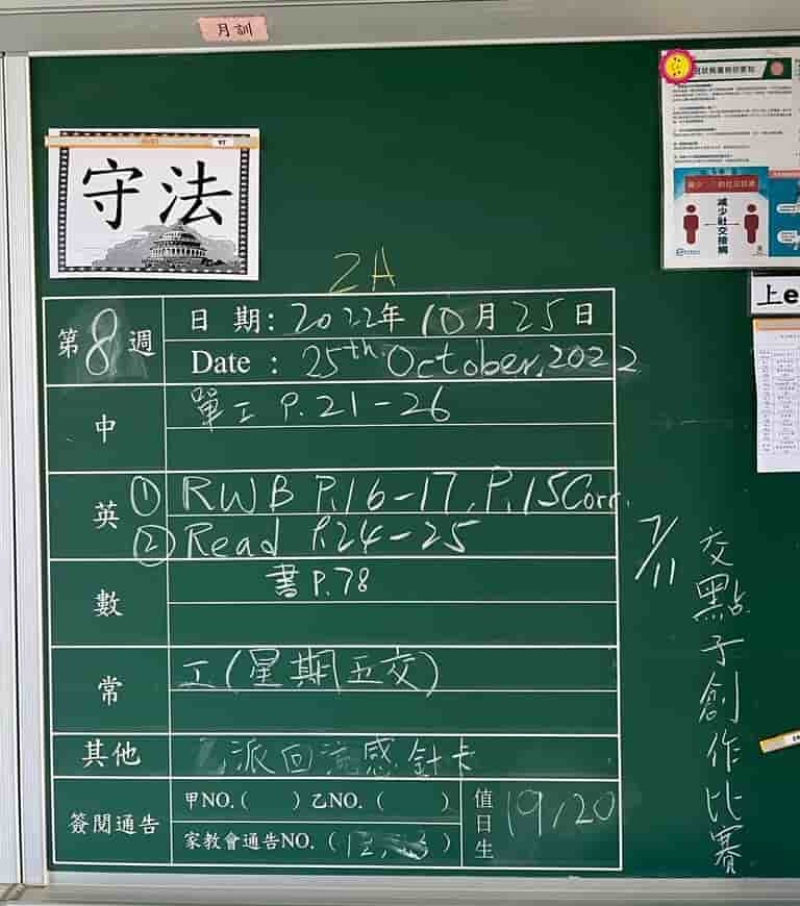 月訓
守法
減少社交接觸
上e
2A
第8週
日期：2022年10月25日
Date : 25th October, 2022
中
單工 P.21-26
英
① RWB P.16-17, P.15 Corr.
② Read P.24-25
數
書P.78
常
工(星期五交)
其他
派回流感針卡
簽閱通告
甲NO.( ) 乙NO.( )
家教會通告NO.(12, )
值日生
19/20
7/11
交點子創作比賽